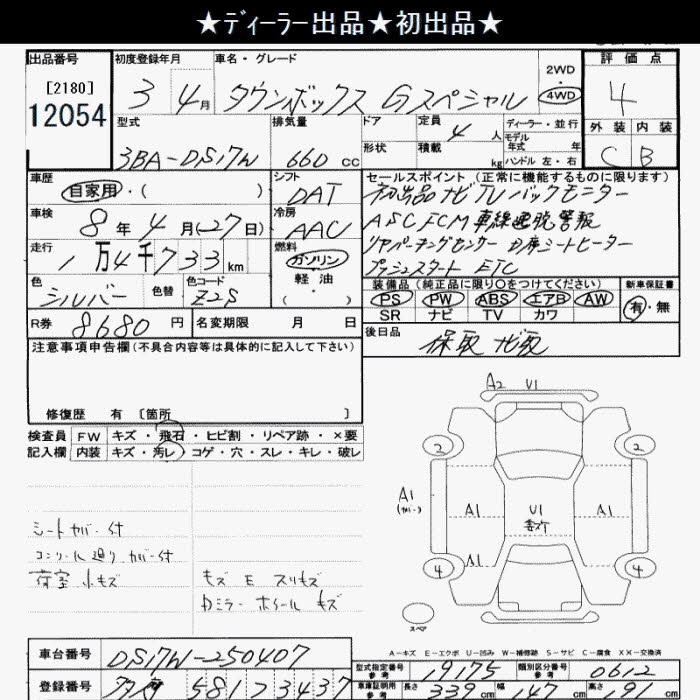 ★ディーラー出品★初出品★
出品番号
[2180]
12054
初度登録年月
3 4月
車名・グレード
タウンボックス Gスペシャル
2WD
・
4WD
評価点
4
外装 内装
C B
型式
3BA-DS17W
排気量
660 cc
ドア
形状
定員
4 人
積載
kg
ディーラー・並行
モデル
年式 年
ハンドル 左・右
車歴
自家用・( )
シフト
DAT
セールスポイント (正常に機能するものに限ります)
初出品 ナビ TV バックモニター
ASC FCM 車線逸脱警報
リヤパーキングセンサー D席シートヒーター
プッシュスタート ETC
車検
8年 4月(27日)
冷房
AAC
走行
1万4千733km
燃料
ガソリン
・
軽油
( )
色
シルバー
色替
色コード
Z2S
装備品 (純正品に限り○をつけてください)
PS PW ABS エアB AW
SR ナビ TV カワ
新車保証書
有・無
R券
8680円
名変期限 月 日
後日品
保取 ナビ取
注意事項申告欄(不具合内容等は具体的に記入して下さい)
修復歴 有 〔箇所 〕
検査員
記入欄
FW キズ・飛石・ヒビ割・リペア跡・×要
内装 キズ・汚レ・コゲ・穴・スレ・キレ・破レ
シートカバー付
荷室 小キズ
キズ E スリキズ
Dミラー ホイール キズ
A2 U1
2 2
A1
(カバー)
A1 U1 A1
A1
4 4
スペア
A-キズ E-エクボ U-凹み W-補修跡 S-サビ C-腐食 XX-交換済
車台番号
DS17W-250407
型式指定番号
参考
19175
類別区分番号
参考
0612
登録番号
581 3437
車庫証明用
参考
長さ 339cm 幅 147cm 高さ 191cm